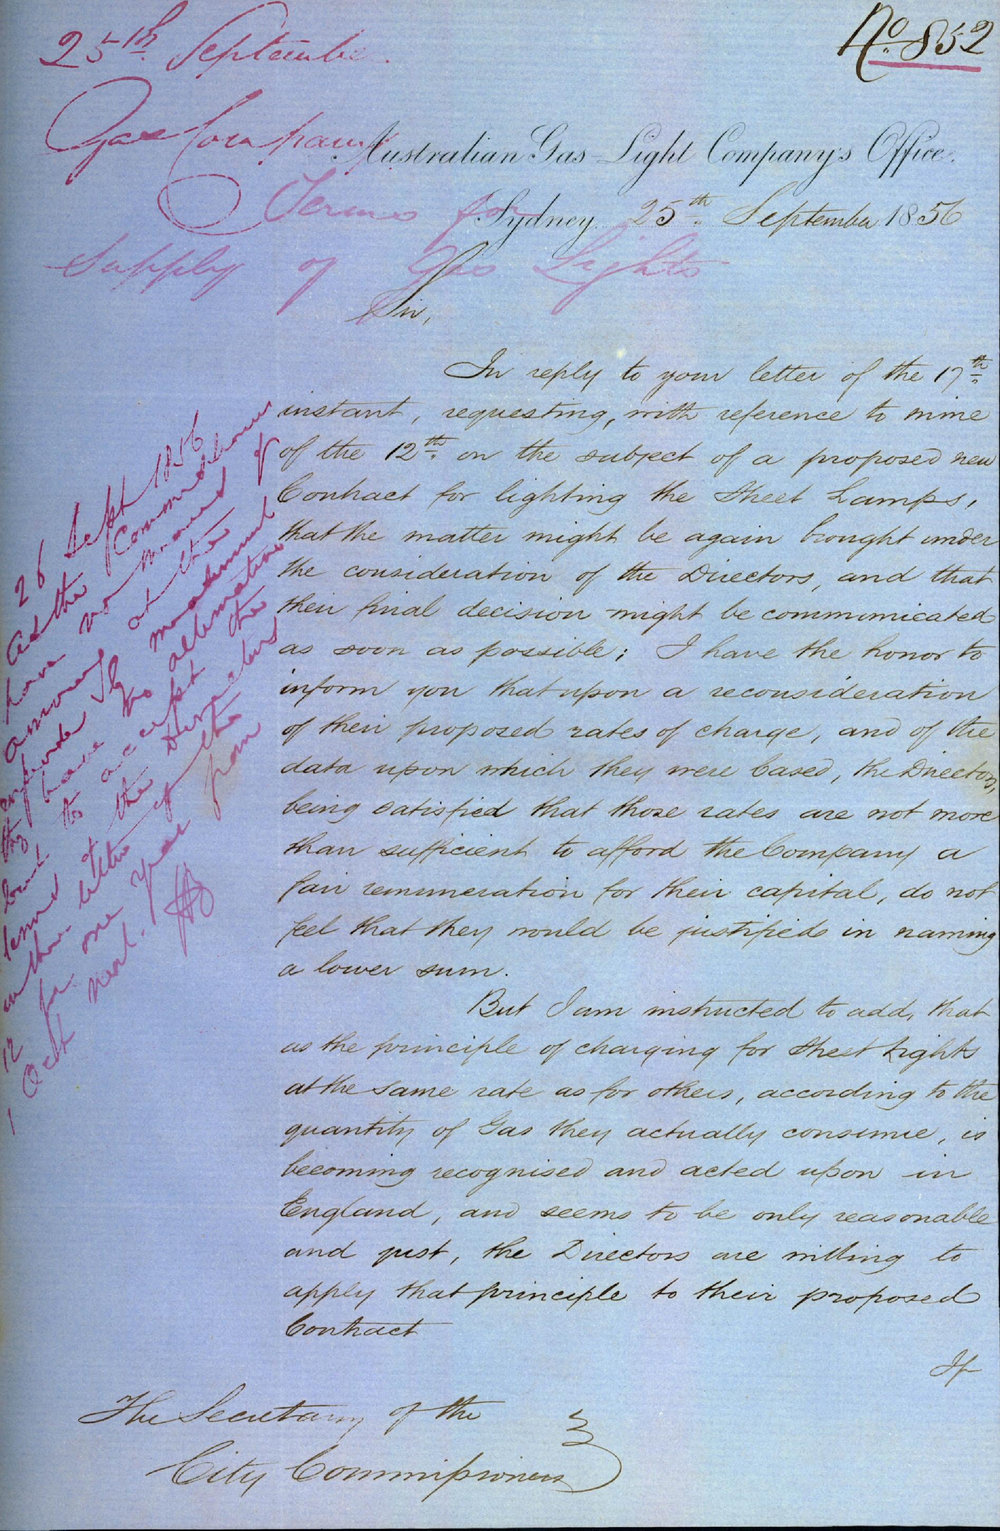 No. 852
25th September
Gas Company
Terms for
Supply of Gas Lights
Australian Gas Light Company's Office.
Sydney 25th September 1856
Sir,
In reply to your letter of the 17th
instant, requesting, with reference to mine
of the 12th on the subject of a proposed new
Contract for lighting the Street Lamps,
that the matter might be again brought under
the consideration of the Directors, and that
their final decision might be communicated
as soon as possible; I have the honor to
inform you that upon a reconsideration
of their proposed rates of charge, and of the
data upon which they were based, the Directors,
being satisfied that those rates are not more
than sufficient to afford the Company a
fair remuneration for their capital, do not
feel that they would be justified in naming
a lower sum.
But I am instructed to add, that
as the principle of charging for Street Lights
at the same rate as for others, according to the
quantity of Gas they actually consume, is
becoming recognised and acted upon in
England, and seems to be only reasonable
and just, the Directors are willing to
apply that principle to their proposed
Contract
If
The Secretary of the
City Commissioners
26 Sept 1856
As the Commissioners
have no means of
at the
they have no alternative
but to accept the
terms of the Directors
in their letter of the
12 for one year from
1 Oct next.